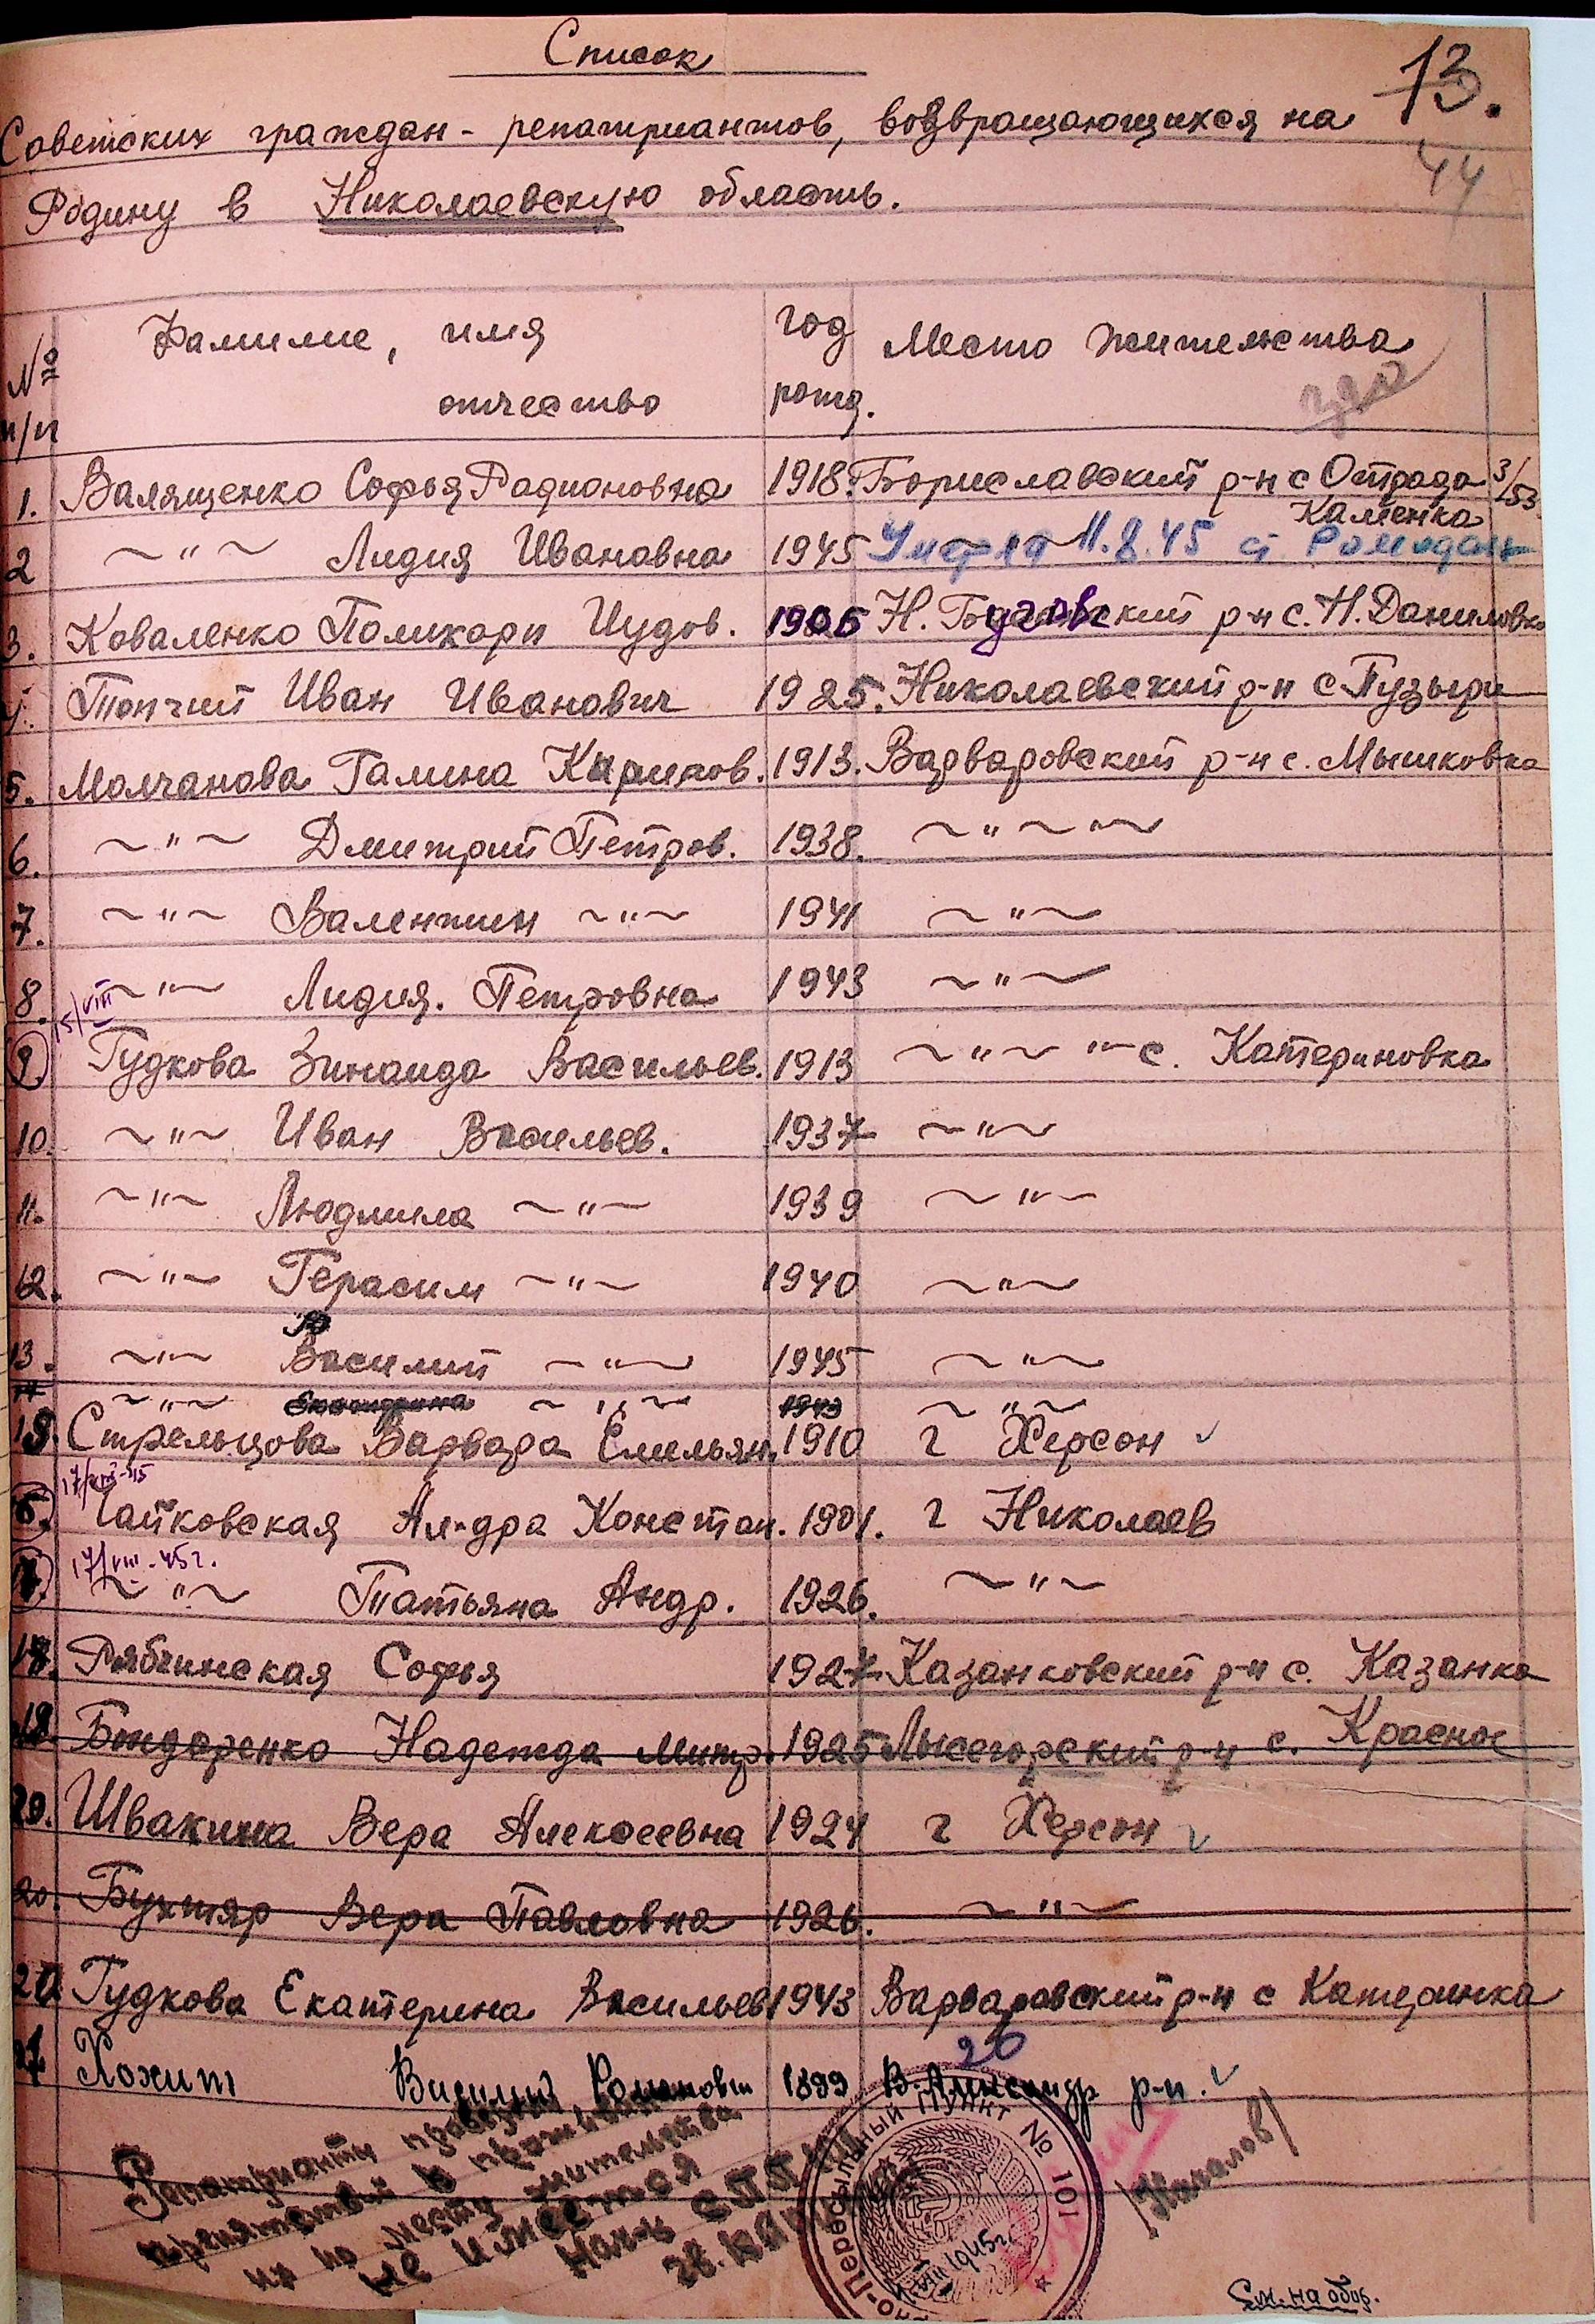 Список
13.
44
Советских граждан-репатриантов, возвращающихся на
Родину в Николаевскую область.
№ п/п Фамилие, имя отчество год рожд. Место жительства
1. Валященко Софья Радионовна 1918. Бориславский р-н с Отрада 3/53
Каменка
2 ~"~ Лидия Ивановна 1945 Умерла 11.8.45 ст. Ромодан
3. Коваленко Поликарп Иудов. 1905 Н. Бугский р-н с. Н. Даниловка
4. Топчий Иван Иванович 1925. Николаевский р-н с Пузыри
5. Молчанова Галина Кирилов. 1913. Варваровский р-н с. Мышковка
6. ~"~ Дмитрий Петров. 1938. ~"~"~
7. ~"~ Валентин ~"~ 1941 ~"~
8. ~"~ Лидия. Петровна 1943 ~"~
15/VIII
9. Гудкова Зинаида Васильев. 1913 ~"~"~ с. Катериновка
10. ~"~ Иван Васильев. 1937 ~"~
11. ~"~ Людмила ~"~ 1939 ~"~
12. ~"~ Герасим ~"~ 1940 ~"~
13. ~"~ Василий ~"~ 1945 ~"~
14 ~"~ Екатерина ~"~ 1943 ~"~
15. Стрельцова Варвара Емельян. 1910 г Херсон
17/VIII-45
Чайковская Ал-дра Констан. 1901. г Николаев
17/VIII-45 г.
~"~ Татьяна Андр. 1926. ~"~
Рябчинская Софья 1927 Казанковский р-н с. Казанка
Бондаренко Надежда Митр. 1925 Лысегорский р-н с. Красное
Швакина Вера Алексеевна 1924 г Херсон
20. Бухтяр Вера Павловна 1926. ~"~
Гудкова Екатерина Васильев 1943 Варваровский р-н с Катеринка
Хожит Василий Романович 1899 В. Александр р-н.
20
Репатрианты
препятствий к
их по месту жительства
не имеется
Нач. СППП
Пересыльный Пункт № 101
1945 г.
См. на обор.